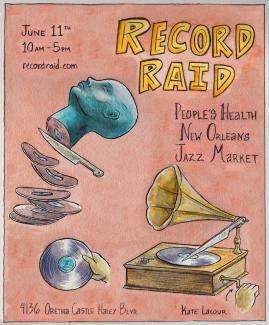 June 11th
10am - 5pm
recordraid.com
RECORD
RAID
People's Health
New Orleans
Jazz Market
4136 Oretha Castle Haley Blvd
Kate Lacour